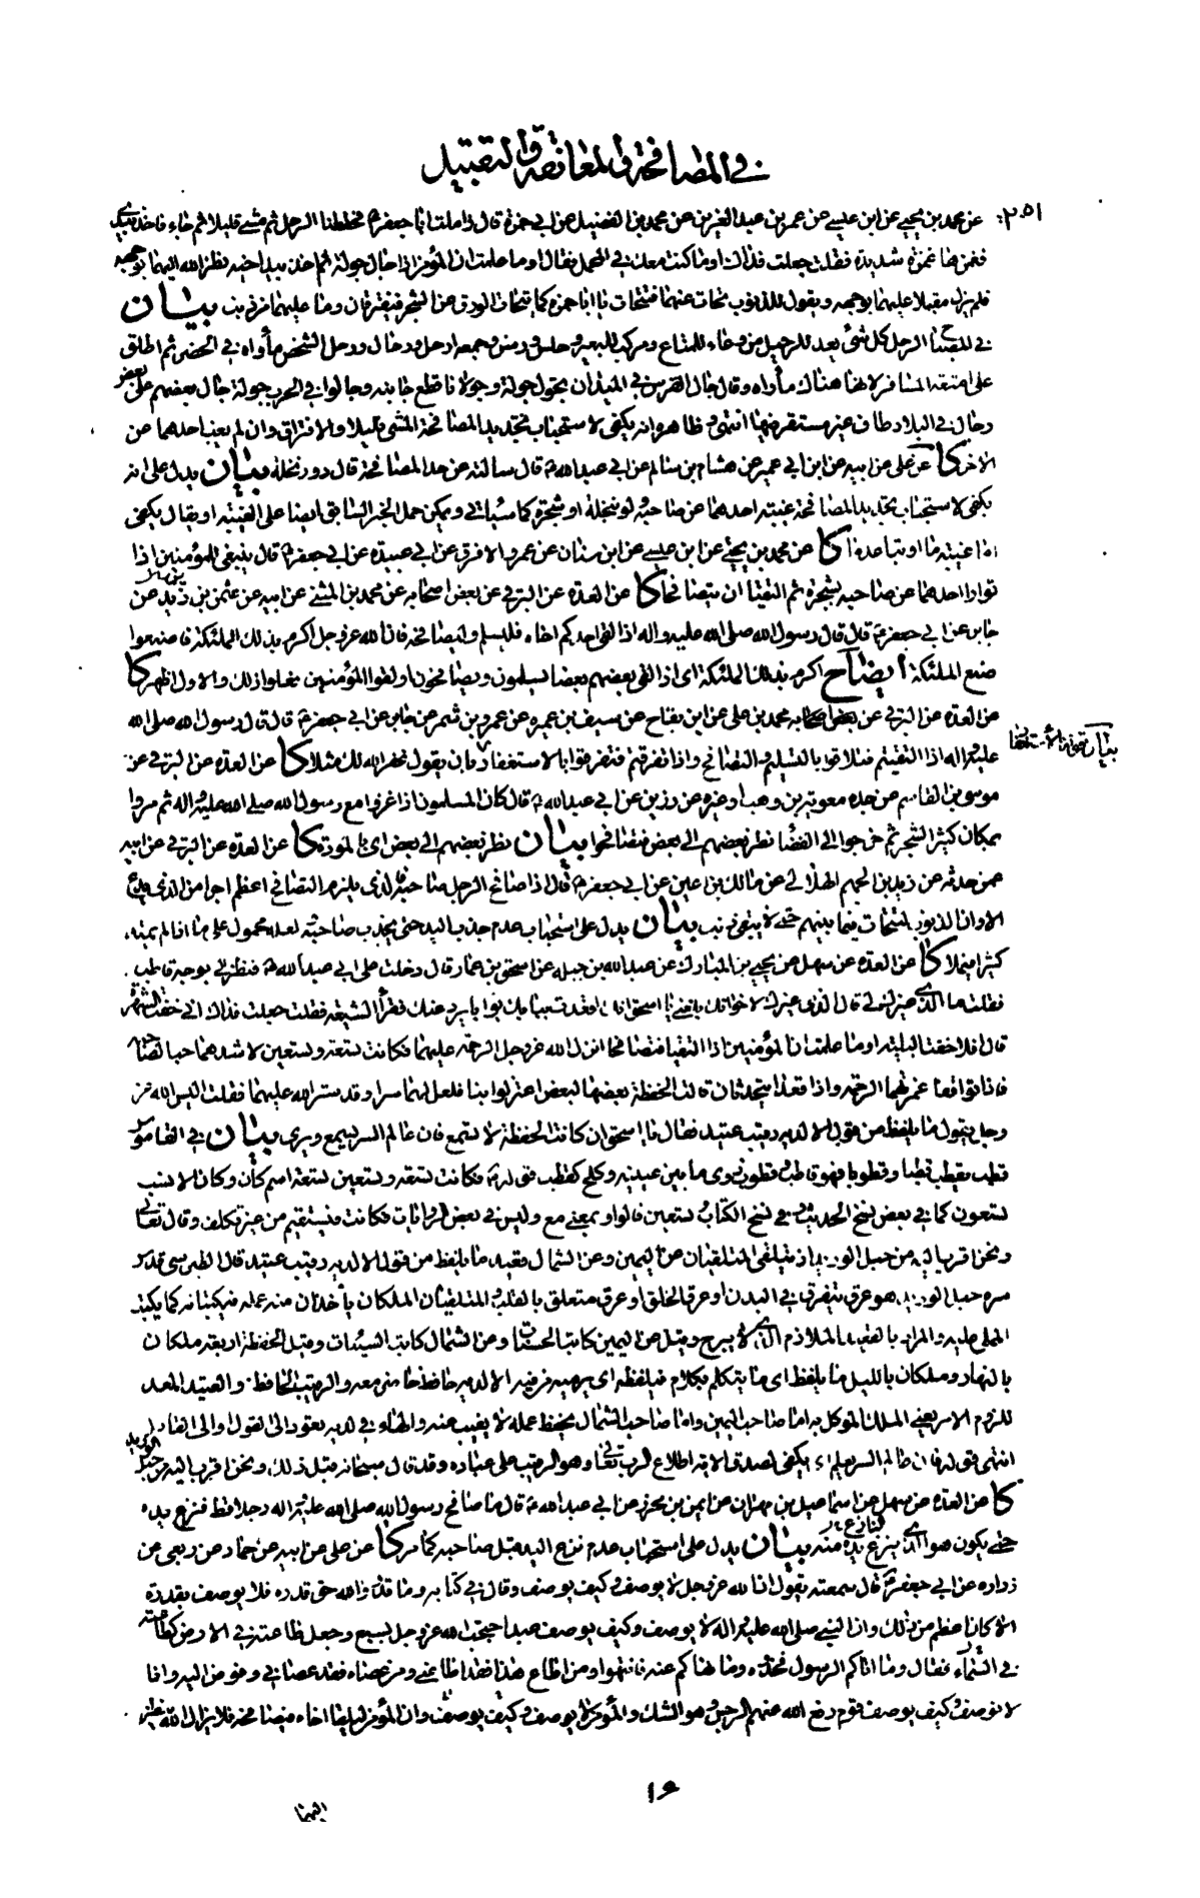 في المصافحة والمعانقة والتقبيل
٢٥١
عن محمد بن يحيى عن ابن عيسى عن عمر بن عبد العزيز عن محمد بن الفضيل عن ابي حمزة قال زاملت ابا جعفر ع فحططنا الرحل ثم مشى قليلا ثم جاء فاخذ بيدي
فغمزها غمزة شديدة فقلت جعلت فداك اوما كنت معك في المحمل فقال اوما علمت ان المؤمن اذا جال جولة ثم اخذ بيد اخيه نظر الله اليهما بوجهه
فلم يزل مقبلا عليهما بوجهه ويقول للذنوب تحات عنهما فتتحات يا ابا حمزة كما يتحات الورق عن الشجر فيفترقان وما عليهما من ذنب بيان
في المصباح الرحل كل شئ يعد للرحيل من وعاء للمتاع ومركب للبعير وحلس ورسن وجمعه ارحل ورحال ورحل الشخص مأواه في الحضر ثم اطلق
على امتعة المسافر لانها هناك مأواه وقال جال الفرس في الميدان يجول جولة وجولانا قطع جوانبه وجالوا في الحرب جولة جال بعضهم على بعض
وجال في البلاد طاف غير مستقر فيها انتهى وظاهره انه يكفي لاستحباب تجديد المصافحة المشي قليلا والافتراق وان لم يغب احدهما عن
الاخر كا عن علي عن ابيه عن ابن ابي عمير عن هشام بن سالم عن ابي عبد الله ع قال سالته عن حد المصافحة قال دور نخلة بيان يدل على انه
يكفي لاستحباب تجديد المصافحة غيبة احدهما عن صاحبه ولو بنخلة او شجرة كما سيأتي ويمكن حمل الخبر السابق ايضا على الغيبة او يقال يكفي
اما غيبة ما او تباعد ما كا عن محمد بن يحيى عن ابن عيسى عن ابن سنان عن عمرو الافرق عن ابي عبيدة عن ابي جعفر ع قال ينبغي للمؤمنين اذا
توارا احدهما عن صاحبه بشجرة ثم التقيا ان يتصافحا كا عن العدة عن البرقي عن بعض اصحابه عن محمد بن المثنى عن ابيه عن عثمن بن زيد عن
جابر عن ابي جعفر ع قال قال رسول الله صلى الله عليه واله اذا لقي احدكم اخاه فليسلم وليصافحه فان الله عز وجل اكرم بذلك الملئكة فاصنعوا
صنع الملئكة ايضاح اكرم بذلك الملئكة اي اذا لقي بعضهم بعضا يسلمون ويصافحون او لقوا المؤمنين فعلوا ذلك والاول اظهر كا
عن العدة عن البرقي عن بعض اصحابه محمد بن علي عن ابن بقاح عن سيف بن عميرة عن عمرو بن شمر عن جابر عن ابي جعفر ع قال قال رسول الله صلى الله
عليه واله اذا التقيتم فتلاقوا بالتسليم والتصافح واذا تفرقتم فتفرقوا بالاستغفار بان يقول غفر الله لك مثلا كا عن العدة عن البرقي عن
موسى بن القاسم عن جده معوية بن وهب او غيره عن رزين عن ابي عبد الله ع قال كان المسلمون اذا غزوا مع رسول الله صلى الله عليه واله ثم مروا
بمكان كثير الشجر ثم خرجوا الى الفضاء نظر بعضهم الى بعض فتصافحوا بيان نظر بعضهم الى بعض اي بالمودة كا عن العدة عن البرقي عن ابيه
عمن حدثه عن زيد بن الجهم الهلالي عن مالك بن اعين عن ابي جعفر ع قال اذا صافح الرجل صاحبه فالذي يلزم التصافح اعظم اجرا من الذي يدع
الا وان الذنوب لتتحات فيما بينهم حتى لا يبقى ذنب بيان يدل على استحباب عدم جذب اليد حتى يجذب صاحبه لعله محمول على ما اذا لم يمتد
كثيرا فيملا كا عن العدة عن سهل عن يحيى بن المبارك عن عبد الله بن جبلة عن اسحق بن عمار قال دخلت على ابي عبد الله ع فنظر الي بوجه قاطب
فقلت ما الذي غيرك لي قال الذي غيرك لاخوانك بلغني يا اسحق انك اقعدت ببابك بوابا يرد عنك فقراء الشيعة فقلت جعلت فداك اني خفت الشهرة
قال افلا خفت البلية اوما علمت ان المؤمنين اذا التقيا فتصافحا انزل الله عز وجل الرحمة عليهما فكانت تسعة وتسعين لاشدهما حبا لصاحبه
فاذا توافقا غمرتهما الرحمة واذا قعدا يتحدثان قالت الحفظة بعضها لبعض اعتزلوا بنا فلعل لهما سرا وقد ستر الله عليهما فقلت اليس الله عز
وجل يقول ما يلفظ من قول الا لديه رقيب عتيد فقال يا اسحق ان كانت الحفظة لا تسمع فان عالم السر يسمع ويرى بيان في القاموس
قطب يقطب قطبا وقطوبا فهو قاطب وقطوب زوى ما بين عينيه وكلح كقطب قوله ع فكانت تسعة وتسعين تسعة اسم كان وكان الانسب
تسعون كما في بعض نسخ الحديث وفي نسخ الكتاب تسعين فالواو بمعنى مع وليس في بعض الروايات فكانت فيستقيم من غير تكلف وقال تعالى
ونحن اقرب اليه من حبل الوريد اذ يتلقى المتلقيان عن اليمين وعن الشمال قعيد ما يلفظ من قول الا لديه رقيب عتيد قال الطبرسي قدس
سره حبل الوريد هو عرق يتفرق في البدن او عرق الحلق او عرق متعلق بالقلب والمتلقيان الملكان يأخذان منه عمله فيكتبانه كما يكتب
المملى عليه والمراد بالقعيد الملازم الذي لا يبرح وقيل عن اليمين كاتب الحسنات وعن الشمال كاتب السيئات وقيل الحفظة اربعة ملكان
بالنهار وملكان بالليل ما يلفظ اي ما يتكلم بكلام فيلفظه اي يرميه من فيه الا لديه حافظ حاضر معه والرقيب الحافظ والعتيد المعد
للزوم الامر يعني الملك الموكل به اما صاحب اليمين واما صاحب الشمال يحفظ عمله لا يغيب عنه والهاء في لديه يعود الى القول او الى القائل
انتهى قوله فان عالم السر يعلم اي يكفي لصدق الاية اطلاع الرب تعالى وهو الرقيب على عباده وقد قال سبحانه قبل ذلك ونحن اقرب اليه من حبل الوريد
كا عن العدة عن سهل عن اسماعيل بن مهران عن ايمن بن محرز عن ابي عبد الله ع قال ما صافح رسول الله صلى الله عليه واله رجلا قط فنزع يده
حتى يكون هو الذي ينزع يده منه بيان يدل على استحباب عدم نزع اليد قبل صاحبه كما مر كا عن علي عن ابيه عن حماد عن ربعي عن
زرارة عن ابي جعفر ع قال سمعته يقول ان الله عز وجل لا يوصف وكيف يوصف وقال في كتابه وما قدروا الله حق قدره فلا يوصف بقدرة
الا كان اعظم من ذلك وان النبي صلى الله عليه واله لا يوصف وكيف يوصف عبد احتجب الله عز وجل بسبع وجعل طاعته في الارض كطاعته
في السماء فقال وما اتاكم الرسول فخذوه وما نهاكم عنه فانتهوا ومن اطاع هذا فقد اطاعني ومن عصاه فقد عصاني وفوض اليه وانا
لا نوصف وكيف يوصف قوم رفع الله عنهم الرجس وهو الشك والمؤمن لا يوصف وكيف يوصف وان المؤمن ليلقى اخاه فيصافحه فلا يزال الله ينظر
اليهما